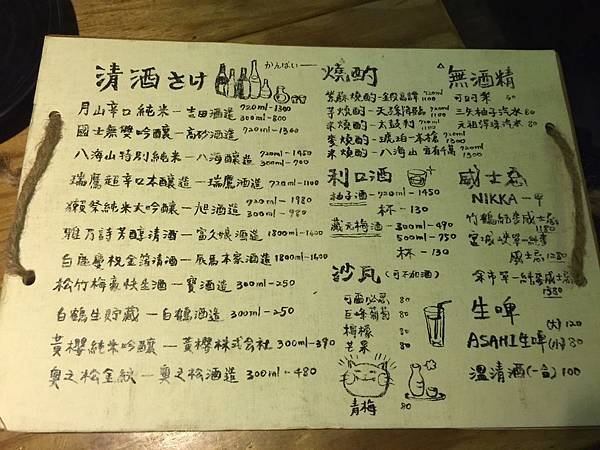 清酒さけ
かんぱいー
月山辛口純米一吉田酒造 720ml-1300
300ml-800
國士無雙吟釀一高砂酒造 720ml-1360
八海山特別純米一八海釀造 720ml-1450
300ml-700
瑞鷹超辛口本釀造一瑞鷹酒造 720ml-1100
獺祭純米大吟釀一旭酒造 720ml-1980
300ml-980
雅乃詩芳醇清酒一富久娘酒造 1800ml-1600
白鹿慶祝金箔清酒一辰馬本家酒造 1800ml-1600
松竹梅豪快生酒一寶酒造 300ml-250
白鶴生貯藏一白鶴酒造 300ml-250
黃櫻純米吟釀一黃櫻株式会社 300ml-390
奧之松金紋一奧之松酒造 300ml-480
燒酌
紫蘇燒酌一鍛高譚 720ml 1100
芋燒酌一天孫降臨 720ml
米燒酌一太鼓判 720ml
麥燒酌一琥珀本格 720ml 1100
米燒酌一八海山 720ml 1300
利口酒
柚子酒一720ml-1450
杯-130
藏元梅酒一300ml-490
500ml-750
杯-130
沙瓦(可不加酒)
可爾必思 80
巨峰葡萄 80
檸檬 80
芒果 80
青梅 80
無酒精
可可學 60
三矢柚子汽水 80
元祖彈珠汽水 80
威士忌
NIKKA一
竹鶴純麥威士忌
1180
宮城峽單一純麥
威士忌 1280
余市單一純麥威士忌
1380
生啤
ASAHI生啤 (大)120
(小)80
溫清酒(一合)100